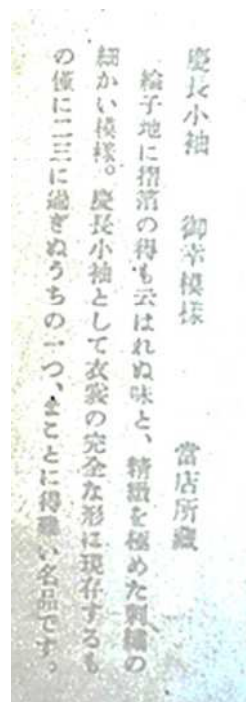 慶長小袖　御幸模様　當店所藏
綸子地に摺箔の得も云はれぬ味と、精緻を極めた刺繍の
細かい模様。慶長小袖として衣裳の完全な形に現存するも
の僅に二三に過ぎぬうちの一つ、まことに得難い名品です。